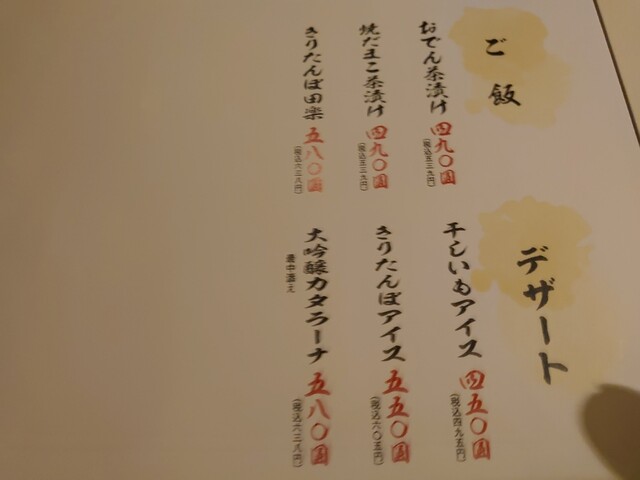 ご飯
おでん茶漬け 四九〇圓
(税込五三九円)
焼だまこ茶漬け 四九〇圓
(税込五三九円)
きりたんぽ田楽 五八〇圓
(税込六三八円)
デザート
干しいもアイス 四五〇圓
(税込四九五円)
きりたんぽアイス 五五〇圓
(税込六〇五円)
大吟醸カタラーナ 五八〇圓
(税込六三八円)